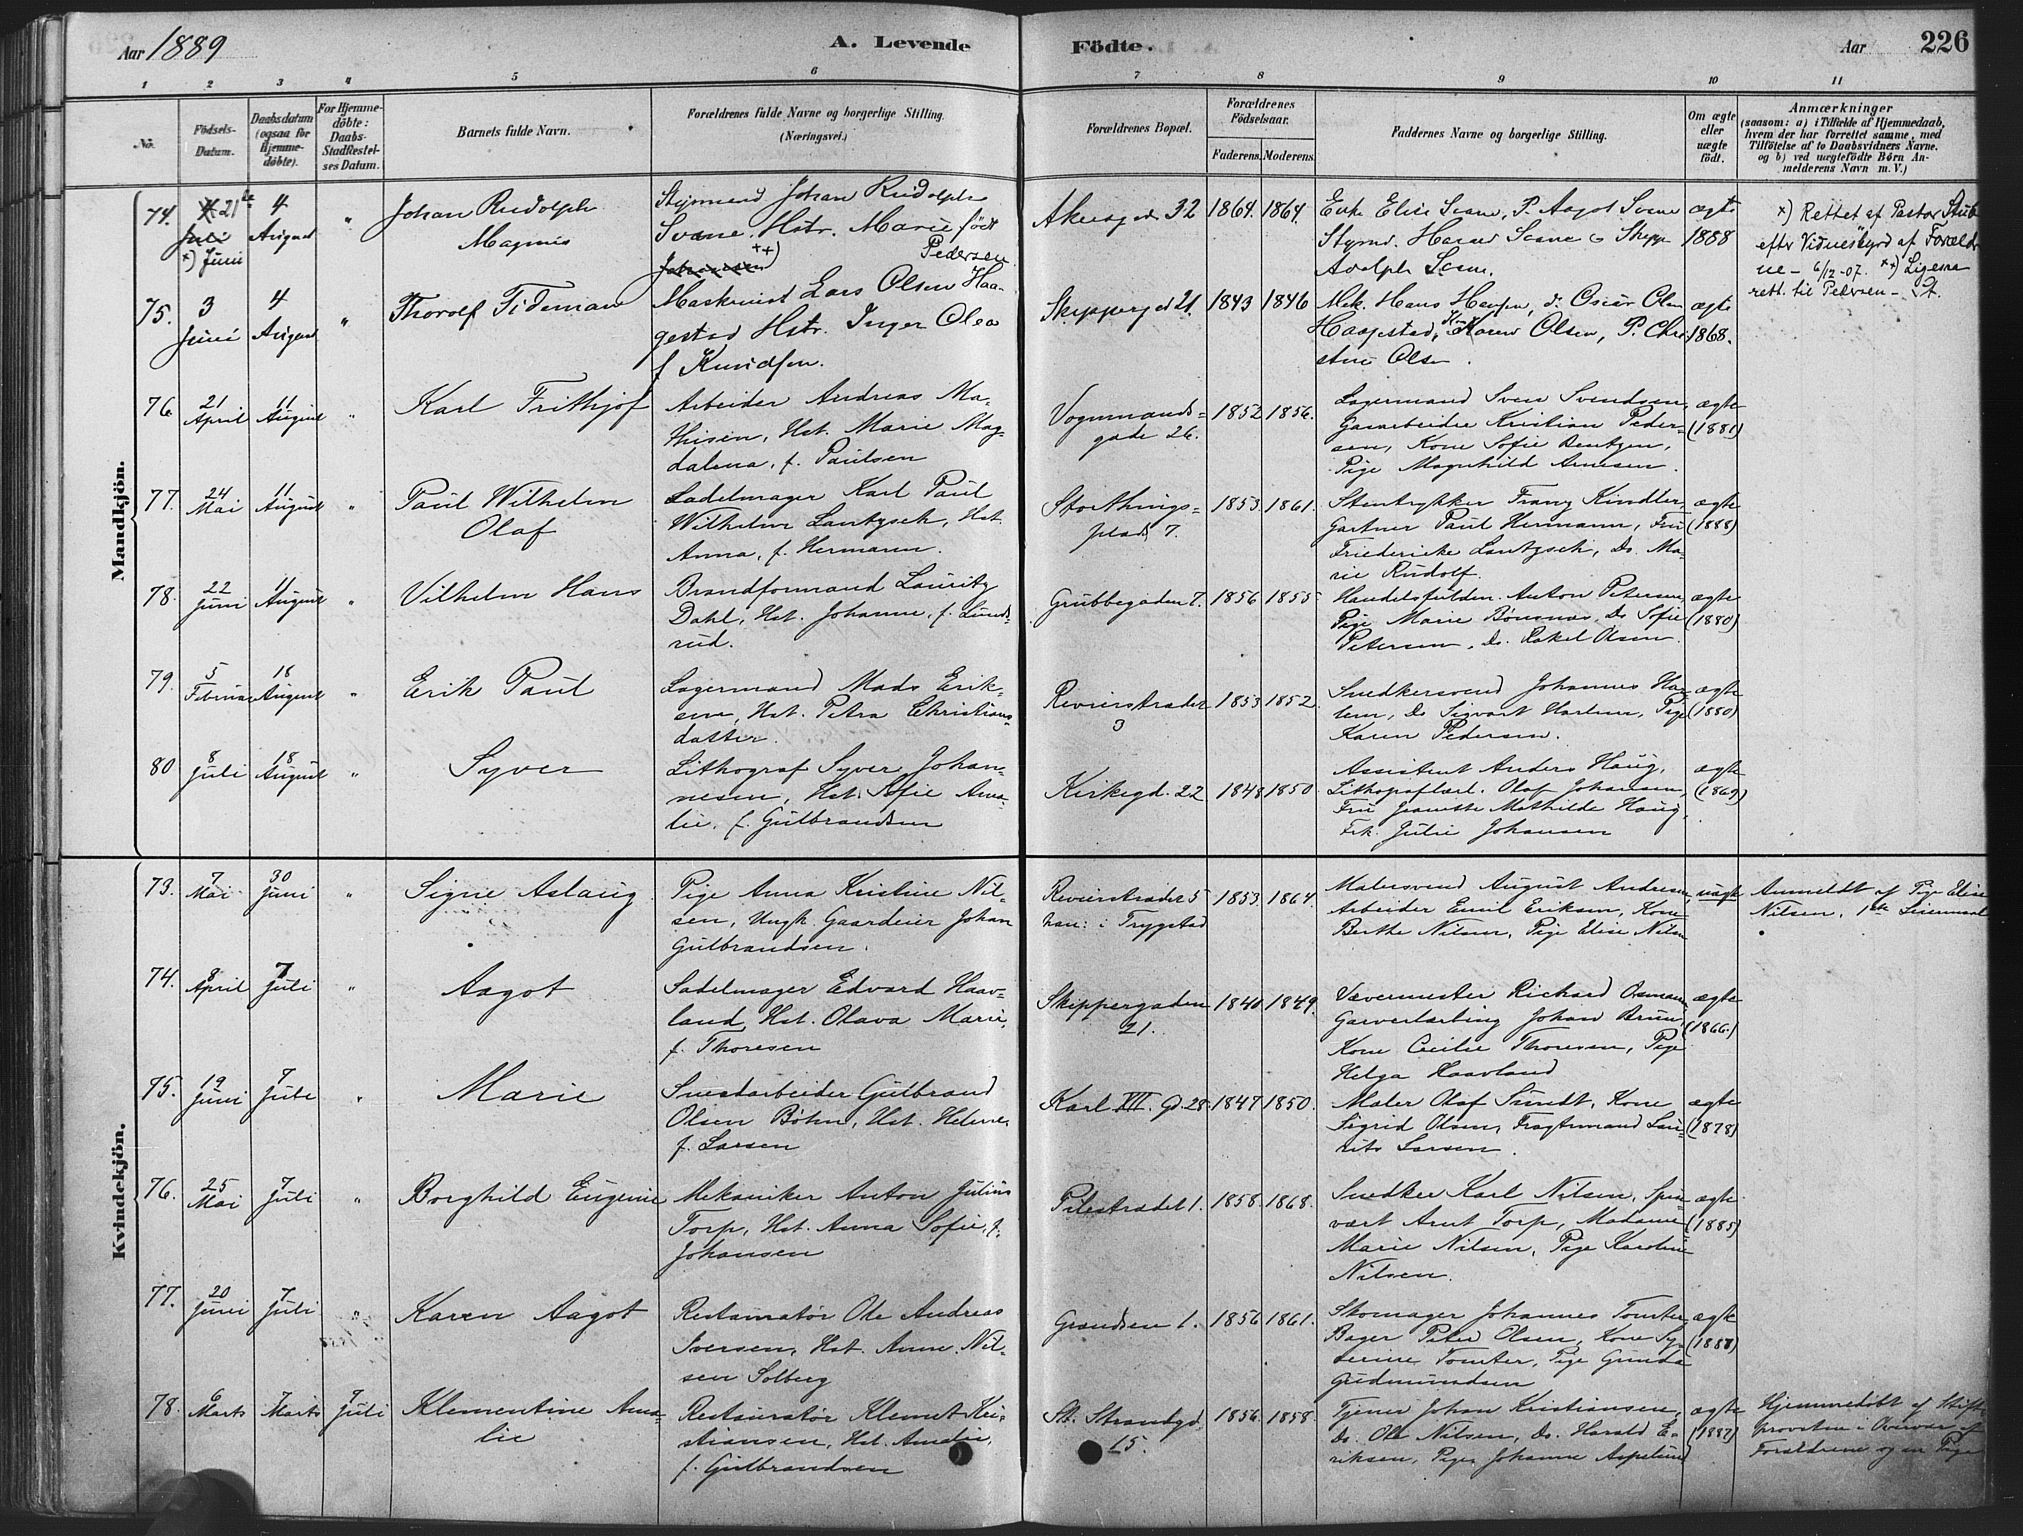 Aar 1889 A. Levende Födte. Aar 226
1 2 3 4 5 6 7 8 9 10 11
No. Födsels-Datum. Daabsdatum (ogsaa for Hjemme-döbte). For Hjemme-döbte: Daabs-Stadfæstel-ses Datum. Barnets fulde Navn. Forældrenes fulde Navne og borgerlige Stilling. (Næringsvei.) Forældrenes Bopæl. Forældrenes Födselsaar. Faderens. Moderens. Faddernes Navne og borgerlige Stilling. Om ægte eller uægte födt. Anmærkninger (saasom: a) i Tilfælde af Hjemmedaab, hvem der har forrettet samme, med Tilföielse af to Daabsvidners Navne. og b) ved uægtefödte Börn An-melderens Navn m. V.)
Mandkjön.
74. 21 Juli x) Juni 4 August " Johan Rudolph Magnus
Styrmand Johan Rudolph
Svane. Hstr. Marie født
Johannesen xx) Pedersen
Akersgd 32 1864. 1864.
Enke Elise Svane, P. Aagot Svane
Styrmd. Harald Svane
Adolph Svane.
ægte 1888
x) Rettet af Pastor Stub
efter Vidnesbyrd af Foræld
ne - 6/12-07. xx) Ligesaa
rett. til Pedersen -
75. 3 Juni 4 August " Thorolf Tideman
Maskinist Lars Olsen Haa-
gestad Hstr. Inger Olea
f Knudsen.
Skipperg d 21. 1843 1846
Mek. Hans Hansen, d. Oscar Olsen
Haagestad, Karen Olsen, P. Chri
stine Olsen.
ægte 1868.
76. 21 April 11 August " Karl Frithjof
Arbeider Andreas Ma-
thisen, Hst. Marie Mag-
dalena, f. Paulsen
Vognmands-
gade 26.
1852 1856.
Lagermand Sven Svendsen,
Gasarbeider Kristian Peder-
sen, Kone Sofie Bentzen,
Pige Magnhild Arnesen.
ægte (1881)
77. 24 Mai 11 August " Paul Wilhelm Olaf
Sadelmager Karl Paul
Wilhelm Lantzsch, Hst.
Anna, f. Hermann.
Storthings-
plads 7.
1853. 1861.
Stentrykker Franz Kindler,
Gartner Paul Hermann, Fru
Friedericke Lantzsch, Ds. Ma-
rie Rudolf.
ægte (1888)
78. 22 Juni 11 August " Vilhelm Hans
Brandformand Lauritz
Dahl, Hst. Johanne, f. Lunds-
rud.
Grubbegaden 7. 1856 1855
Handelsfuldm. Anton Petersen,
Pige Marie Bonsnæs, Ds Sofie
Petersen, Ds. Rakel Olsen.
ægte (1880)
79. 5 Februar 18 August " Erik Paul
Lagermand Mads Erik-
sen, Hst. Petra Christians
datter.
Revierstrædet
3
1853 1852
Snedkersvend Johannes Har-
lem, Ds Sigvart Harlem, Pige
Karen Pedersen.
ægte (1880)
80 8 Juli 18 August " Syver
Lithograf Syver Johan-
nesen, Hst. Sofie Ama-
lie, f. Gulbrandsen
Kirkegd. 22 1848 1850
Assistent Anders Haug,
Lithograflærl. Olaf Johansen,
Fru Mathilde Haug,
Frk. Julie Johansen
ægte (1869)
Kvindekjön.
73. 7 Mai 30 Juni " Signe Aslaug
Pige Anna Kristine Nil-
sen, Ungk. Gaardeier Johan
Gulbrandsen.
Revierstrædet 5
han: i Trygstad
1853. 1864.
Malersvend August Andresen,
Arbeider Emil Eriksen, Kone
Berthe Nilsen, Pige Elise Nilsen
uægte
Anmeldt af Pige Elise
Nilsen. 1ste Leiermaal
74. 8 April 7 Juli " Aagot
Sadelmager Edvard Haav-
land, Hst. Olava Marie,
f. Thoresen
Skippergaden
21.
1840 1849.
Vævermester Richard Osmann,
Garverlærling Johan Brun,
Kone Cecilie Thoresen, Pige
Helga Haavland
ægte (1866.)
75. 19 Juni 7 Juli " Marie
Smedarbeider Gulbrand
Olsen Bøhn, Hst. Helene,
f. Larsen
Karl XII. Gd. 28. 1847 1850.
Maler Olaf Sundt, Kone
Sigrid Olsen, Fragtmand Lau-
rits Larsen.
ægte (1878)
76. 25 Mai 7 Juli " Borghild Eugenie
Mekaniker Anton Julius
Torp, Hst. Anna Sofie, f.
Johansen
Pilestrædet 1. 1858. 1868.
Snedker Karl Nilsen, Spise-
vært Arnt Torp, Madame
Marie Nilsen, Pige Karoline
Nilsen.
ægte (1885)
77. 20 Juni 7 Juli " Karen Aagot
Restauratør Ole Andreas
Iversen, Hst. Anne Nil-
sen Solberg
Grændsen 1. 1856 1861.
Skomager Johannes Tomter,
Bager Peter Olsen, Kone Sy-
verine Tomter, Pige Gunda
Gudmundsen
ægte (1888)
78. 6 Marts 7 Marts 7 Juli Klementine Ama-
lie
Restauratør Klemet Kri-
stiansen, Hst. Amalie,
f. Gulbrandsen
St. Strandgd.
15.
1856. 1858.
Tjener Johan Kristiansen,
Ds. Ole Nilsen, Ds. Harald E-
riksen, Pige Johanne Aspelund
ægte (1887)
Hjemmedøbt af Stifts
provsten i Overvær af
Forældrene og en Pige